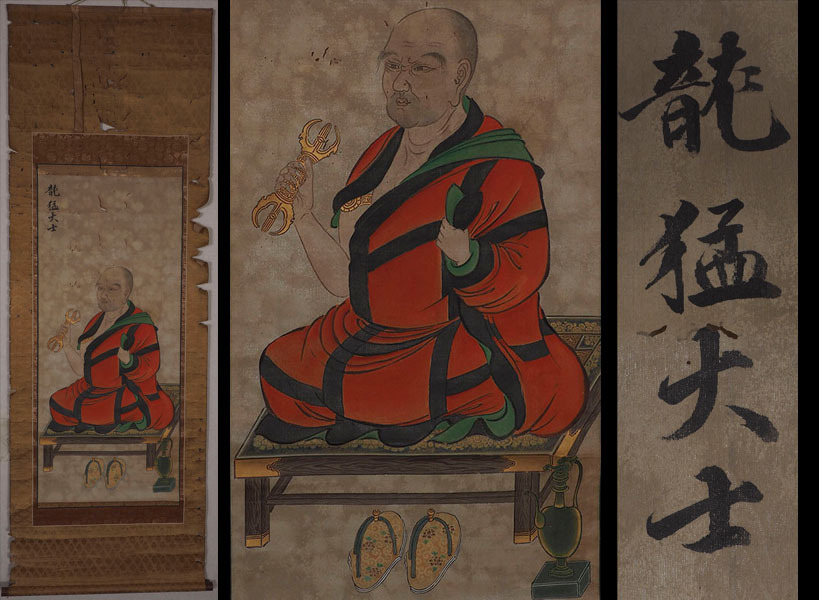 龍猛大士
龍猛大士